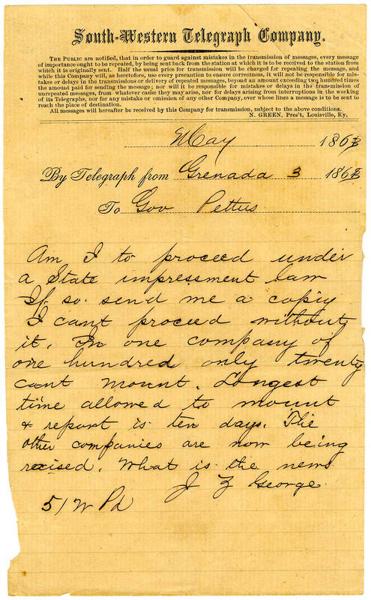 South-Western Telegraph Company.
THE PUBLIC are notified, that in order to guard against mistakes in the transmission of messages, every message
of importance ought to be repeated, by being sent back from the station at which it is to be received to the station from
which it is originally sent. Half the usual price for transmission will be charged for repeating the message, and
while this Company will, as heretofore, use every precaution to ensure correctness, it will not be responsible for mis-
takes or delays in the transmissions or delivery of repeated messages, beyond an amount exceeding two hundred times
the amount paid for sending the message; nor will it be responsible for mistakes or delays in the transmission of
unrepeated messages, from whatever cause they may arise, nor for delays arising from interruptions in the working
of its Telegraphs, nor for any mistake or omission of any other Company, over whose lines a message is to be sent to
reach the place of destination.
All messages will hereafter be received by this Company for transmission, subject to the above conditions.
N. GREEN, Pres't, Louisville, Ky.
May 1863
By Telegraph from Grenada 3 1863
To Gov Pettus
Am I to proceed under
a State impressment law
If so send me a copy
I cant proceed without
it. In one company of
one hundred only twenty
cant mount. Longest
time allowed to mount
& report is ten days. The
other companies are now being
raised. What is the news
J Z George
51 W Pd